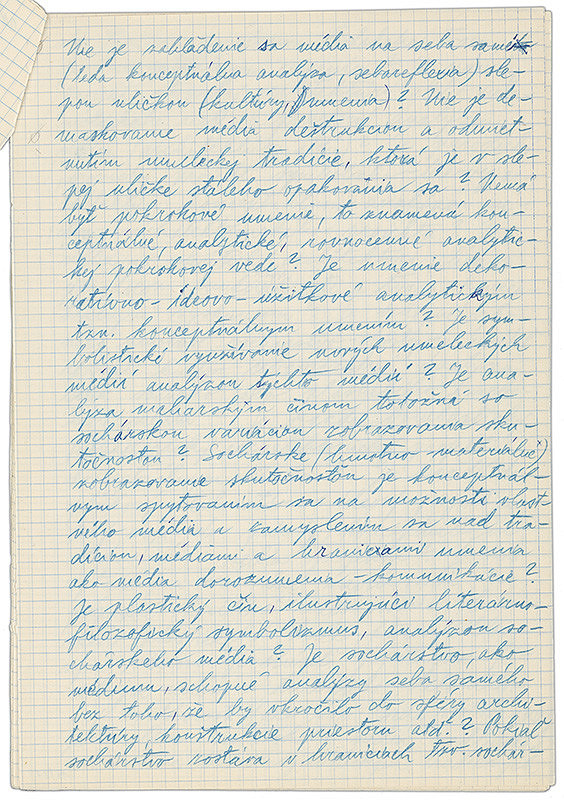 Nie je zakladanie sa média na seba samého
(teda konceptuálna analýza, sebareflexia) sle-
pou uličkou (kultúry, umenia)? Nie je de-
maskovanie média deštrukciou a odmiet-
nutím umeleckej tradície, ktorá je v sle-
pej uličke stáleho opakovania sa? Nemá
byť pokrokové umenie, to znamená kon-
ceptuálné, analytické, rovnocenné analytic-
kej pokrokovej vede? Je umenie deko-
ratívno-ideovo-úžitkové analytickým
tzn. konceptuálnym umením? Je sym-
bolistické využívanie nových umeleckých
médií analýzou týchto médií? Je ana-
lýza maliarskym činom totožná so
sochárskou variáciou zobrazovania sku-
točnosťou? Sochárske (hmotno-materiálne)
zobrazovanie skutočnosťou je konceptuál-
nym spytovaním sa na možnosti vlast-
ného média a zamyslením sa nad tra-
díciou, médiami a hranicami umenia
ako média dorozumenia-komunikácie?
Je plastický čin, ilustrujúci literárno-
filozofický symbolizmus, analýzou so-
chárskeho média? Je sochárstvo, ako
médium, schopné analýzy seba samého
bez toho, že by vkročilo do sféry archi-
tektúry, konštrukcie priestoru atď.? Pokiaľ
sochárstvo zostáva v hraniciach tzv. sochár-